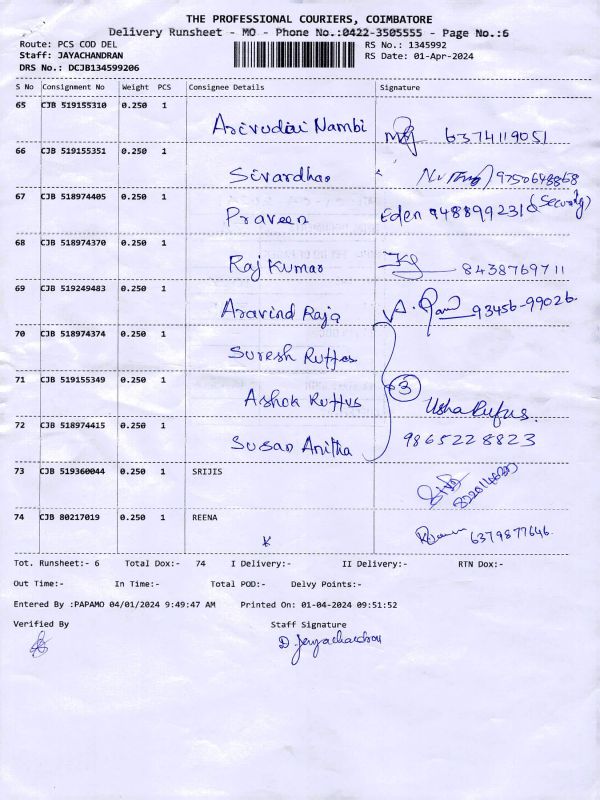 THE PROFESSIONAL COURIERS, COIMBATORE
Delivery Runsheet - MO - Phone No.:0422-3505555 - Page No.:6
Route: PCS COD DEL
RS No.: 1345992
Staff: JAYACHANDRAN
RS Date: 01-Apr-2024
DRS No.: DCJB134599206
S No Consignment No Weight PCS Consignee Details Signature
65 CJB 519155310 0.250 1
Arivudai Nambi 6374119051
66 CJB 519155351 0.250 1
Sivardhas 9750648868
67 CJB 518974405 0.250 1
Praveen Eden 948899231 (Security)
68 CJB 518974370 0.250 1
Raj Kumar 8438769711
69 CJB 519249483 0.250 1
Aravind Raja 93456-99026
70 CJB 518974374 0.250 1
Suresh Ruffus
71 CJB 519155349 0.250 1
Ashok Ruffus 3 Usha Rufus.
72 CJB 518974415 0.250 1
Susan Anitha 9865228823
73 CJB 519360044 0.250 1 SRIJIS
74 CJB 80217019 0.250 1 REENA
6379877646.
Tot. Runsheet:- 6 Total Dox:- 74 I Delivery:- II Delivery:- RTN Dox:-
Out Time:- In Time:- Total POD:- Delvy Points:-
Entered By :PAPAMO 04/01/2024 9:49:47 AM Printed On: 01-04-2024 09:51:52
Verified By Staff Signature
D. Jeyachandran